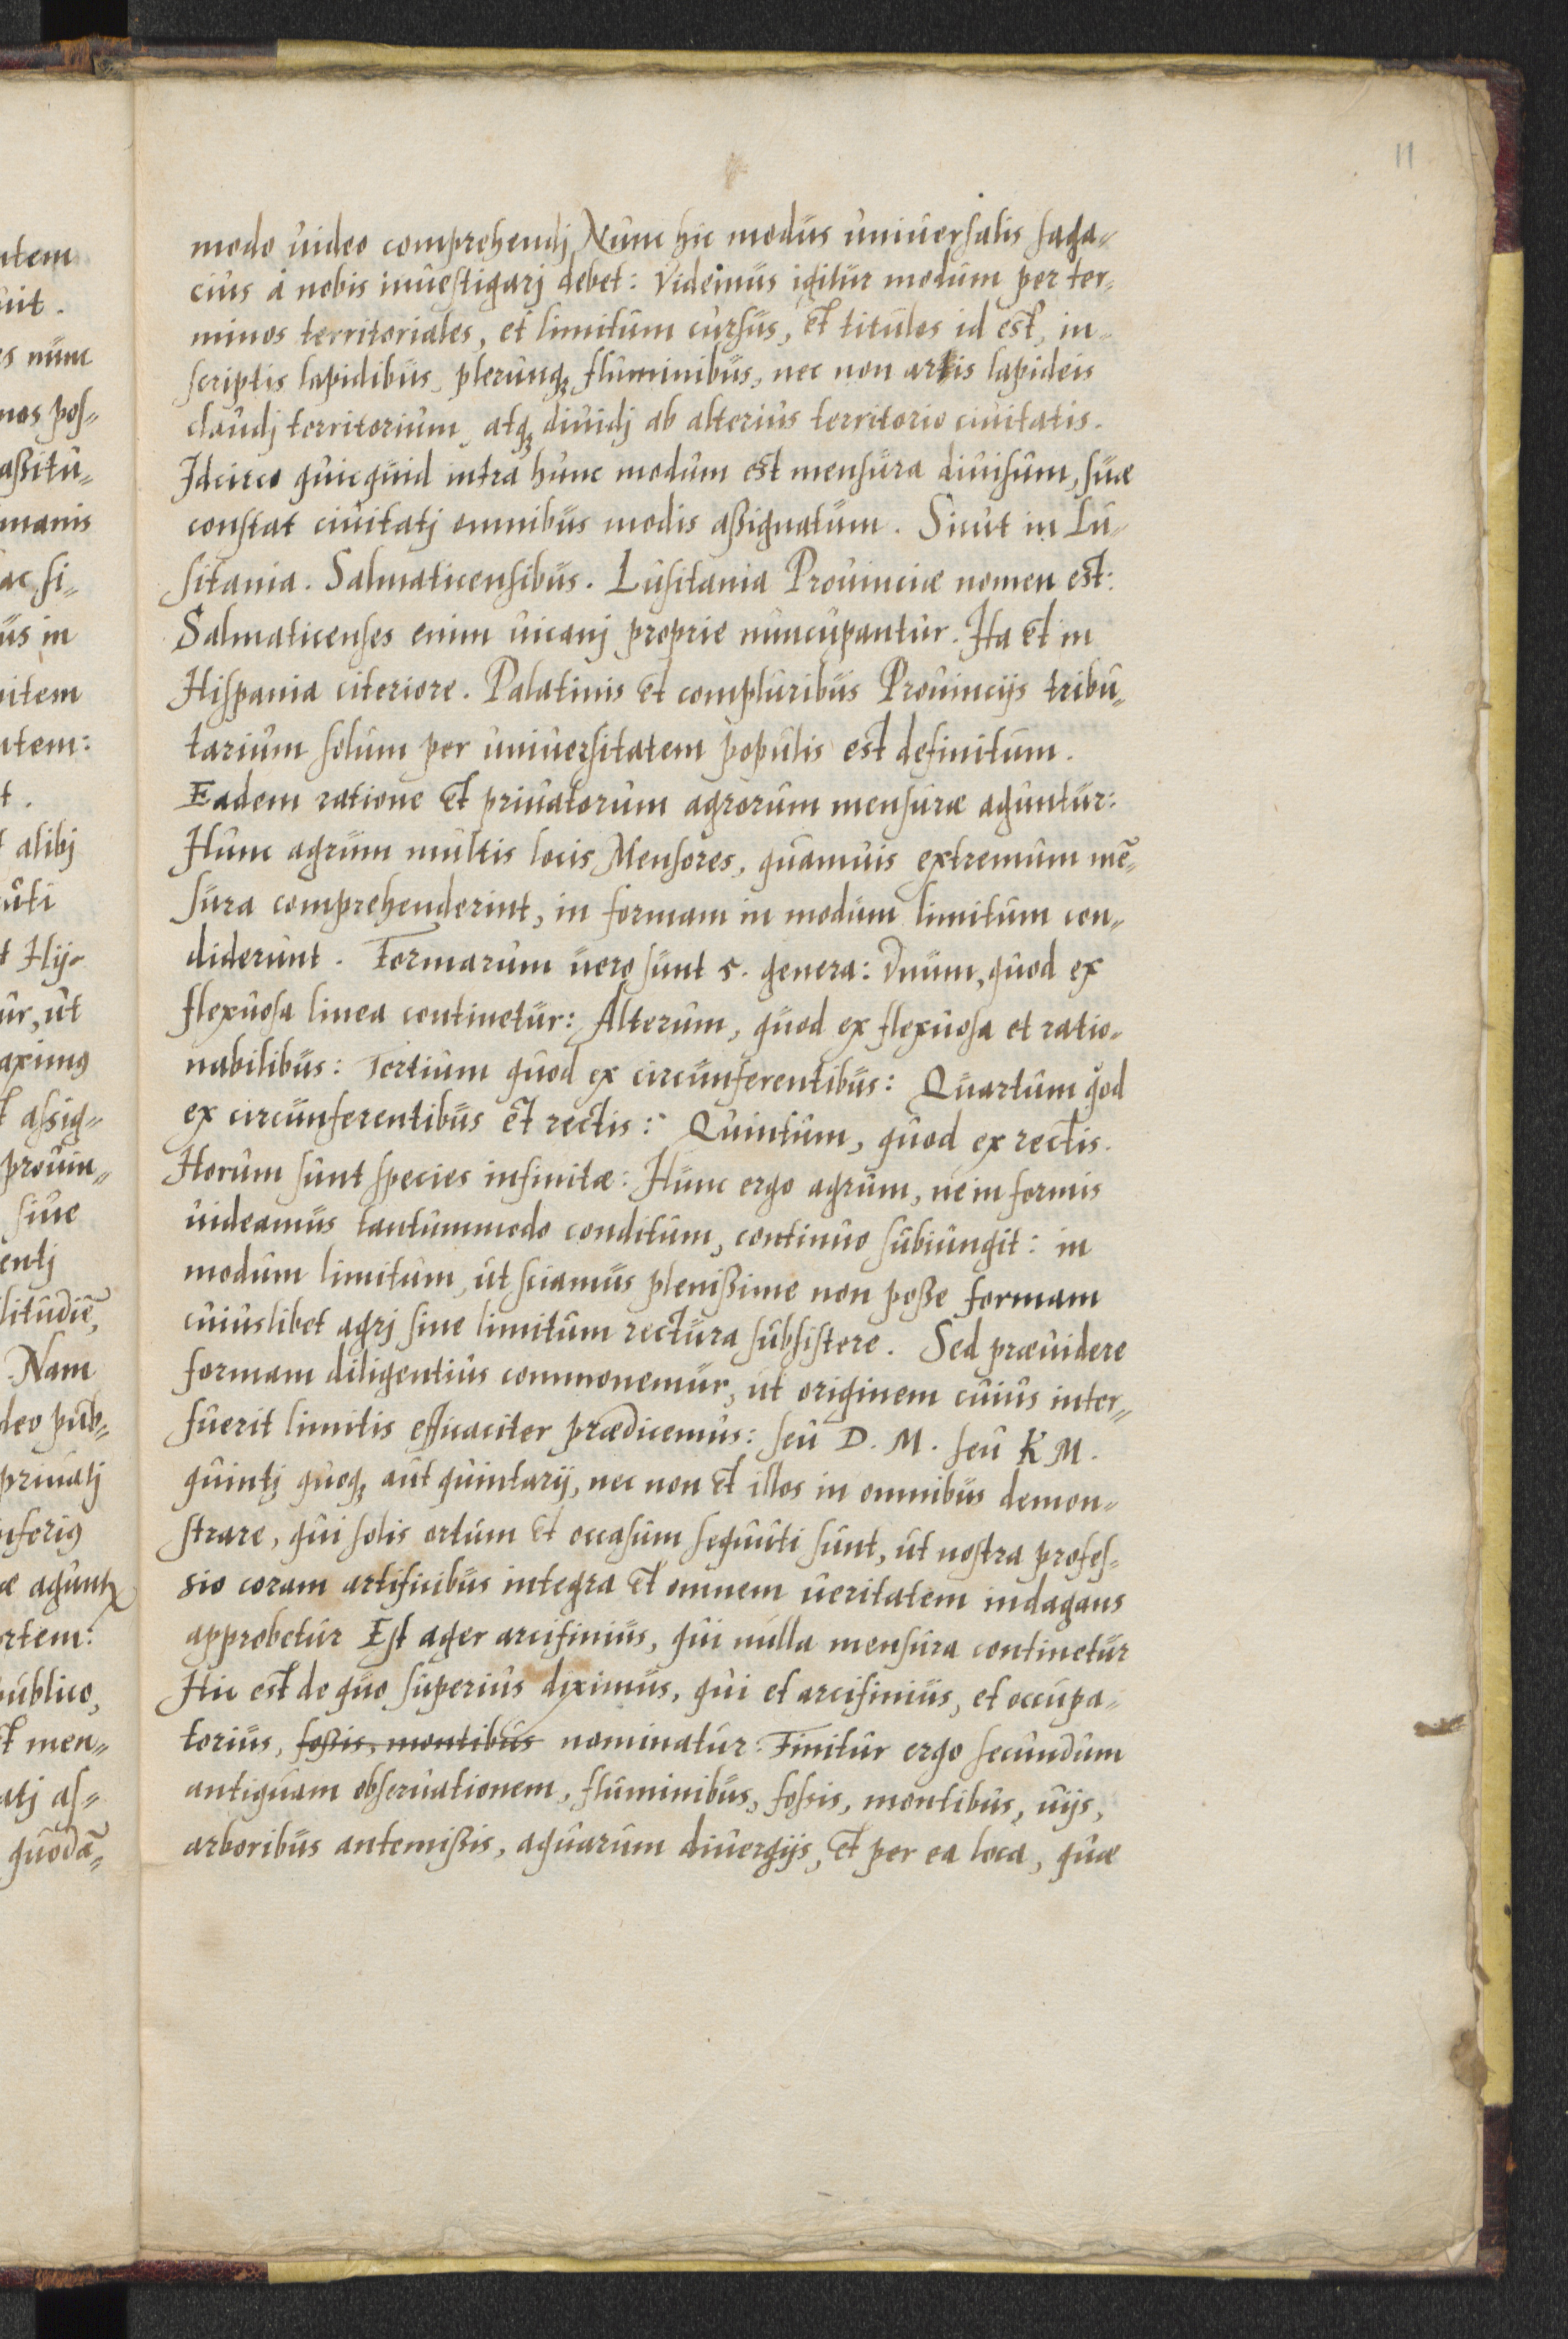 11
modo uideo comprehendj Nunc hic modus uniuersalis saga-
cius à nobis inuestigarj debet: Videmus igitur modum per ter-
minos territoriales, et limitum cursus, et titulos id est, in-
scriptis lapidibus, plerunq; fluminibus, nec non artis lapideis
claudj territorium, atq; diuidj ab alterius territorio ciuitatis.
Idcirco quicquid intra hunc modum est mensura diuisum, suæ
constat ciuitatj omnibus modis aßignatum. Sicut in Lu-
sitania. Salmaticensibus. Lusitania Prouinciæ nomen est:
Salmaticenses enim uicanj proprie nuncupantur. Ita et in
Hispania citeriore. Palatinis et compluribus Prouincijs tribu-
tarium solum per uniuersitatem populis est definitum.
Eadem ratione et priuatorum agrorum mensuræ aguntur:
Hunc agrum multis locis Mensores, quamuis extremum mē-
sura comprehenderint, in formam in modum limitum con-
diderunt. Formarum uero sunt 5. genera: Vnum, quod ex
flexuosa linea continetur: Alterum, quod ex flexuosa et ratio-
nabilibus: Tertium quod ex circunferentibus: Quartum qod
ex circunferentibus et rectis: Quintum, quod ex rectis.
Horum sunt species infinitæ: Hunc ergo agrum, ne in formis
uideamus tantummodo conditum, continuo subiungit: in
modum limitum, ut sciamus plenißime non poße formam
cuiuslibet agrj sine limitum rectura subsistere. Sed præuidere
formam diligentius commonemur, ut originem cuius inter-
fuerit limitis efficaciter prædicemus: seu D. M. seu K M.
quintj quoq; aut quintarij, nec non et illos in omnibus demon-
strare, qui solis ortum et occasum sequuti sunt, ut nostra profes-
sio coram artificibus integra et omnem ueritatem indagans
approbetur Est ager arcifinius, qui nulla mensura continetur
Hic est de quo superius diximus, qui et arcifinius, et occupa-
torius, foßis, montibus nominatur: Finitur ergo secundum
antiquam obseruationem, fluminibus, fossis, montibus, uijs,
arboribus antemißis, aquarum diuergijs, et per ea loca, quæ